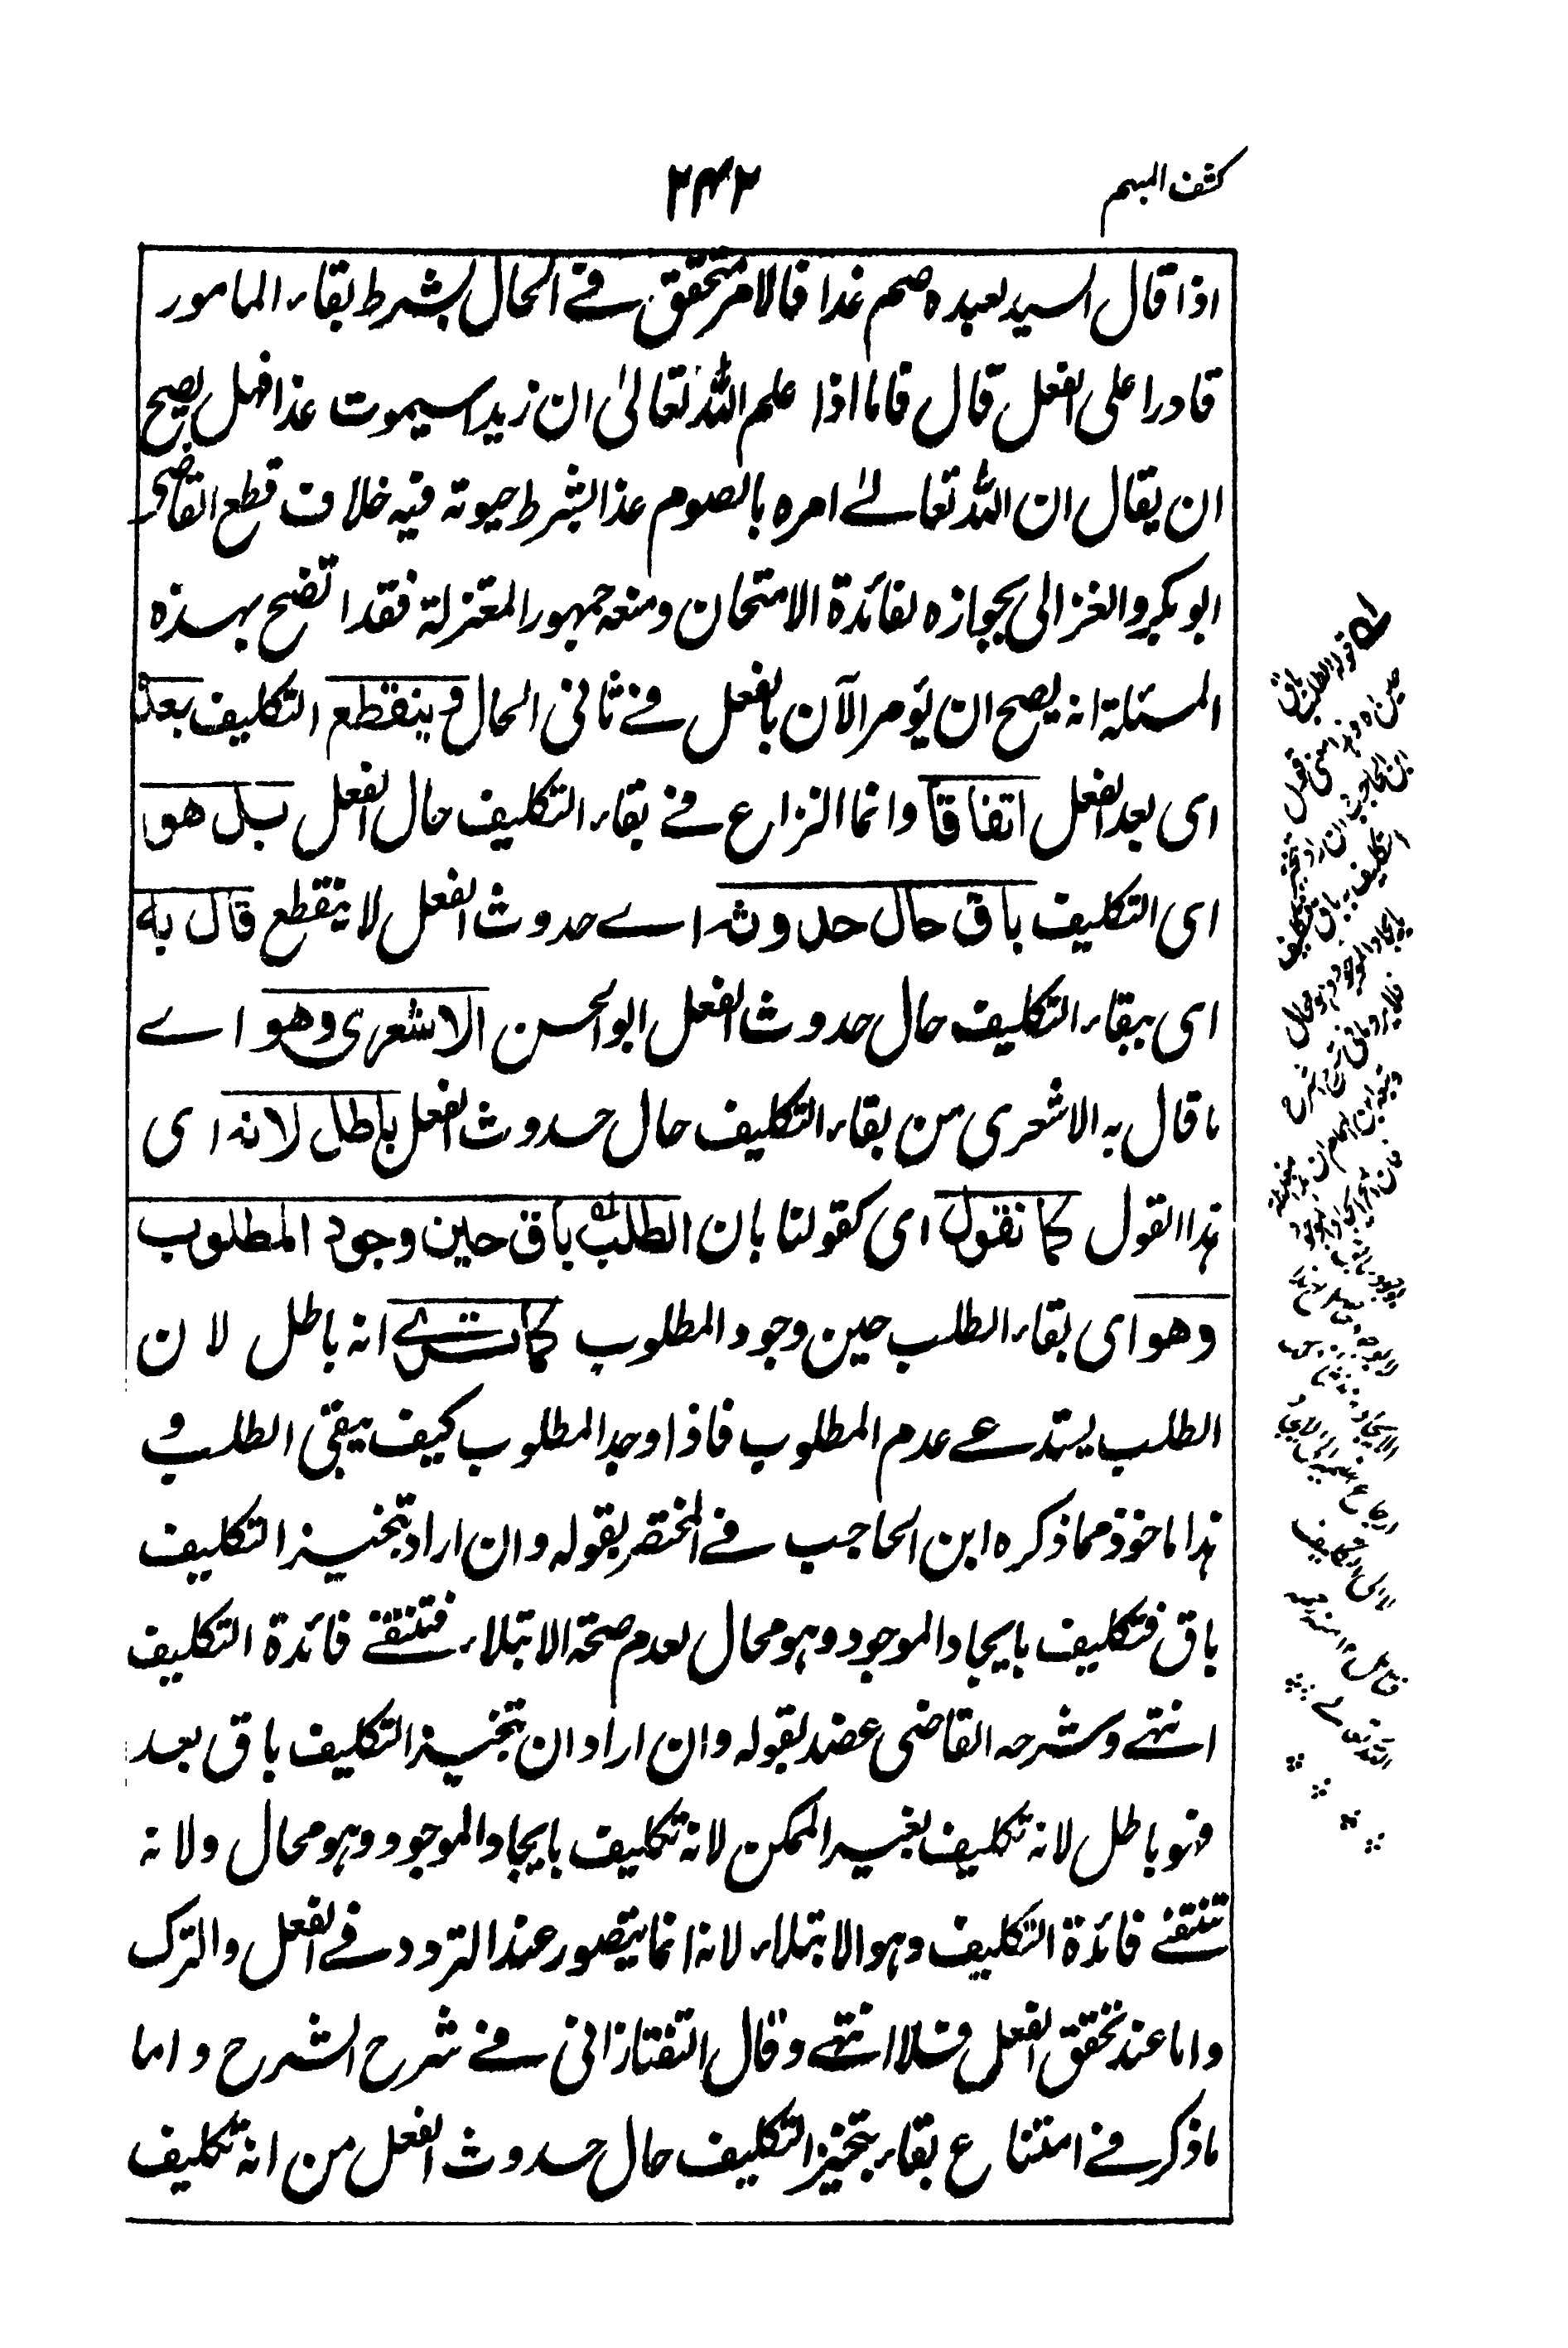 كشف المبهم
٢٤٢
اذا قال السيد لعبده صم غدا فالامر متحقق في الحال بشرط بقاء المامور
قادرا على الفعل قال فاما اذا علم الله تعالى ان زيدا سيموت غدا فهل يصح
ان يقال ان الله تعالى امره بالصوم غدا بشرط حيوته فيه خلاف قطع القاضي
ابو بكر والغزالى بجوازه لفائدة الامتحان ومنعه جمهور المعتزلة فقد اتضح بهذه
المسئلة انه يصح ان يؤمر الآن بالفعل في ثاني الحال و ينقطع التكليف بعده
اى بعد الفعل اتفاقا وانما النزاع في بقاء التكليف حال الفعل بل هو
اى التكليف باق حال حدوثه اے حدوث الفعل لا ينقطع قال به
اى ببقاء التكليف حال حدوث الفعل ابو الحسن الاشعرى وهو اے
ما قال به الاشعرى من بقاء التكليف حال حدوث الفعل باطل لانه اى
هذا القول كما نقول اى كقولنا بان الطلب باق حين وجود المطلوب
وهو اى بقاء الطلب حين وجود المطلوب كما ترے انه باطل لان
الطلب يستدعے عدم المطلوب فاذا وجد المطلوب كيف يبقى الطلب و
هذا ماخوذ مما ذكره ابن الحاجب في المختصر بقوله وان اراد تنجيز التكليف
باق فتكليف بايجاد الموجود وهو محال لعدم صحة الابتلاء فتنتفے فائدة التكليف
انتهے وشرحه القاضى عضد بقوله وان اراد ان تنجيز التكليف باق بعد
فهو باطل لانه تكليف بغير الممكن لانه تكليف بايجاد الموجود وهو محال ولانه
تنتفے فائدة التكليف وهو الابتلاء لانه انما يتصور عند التردد في الفعل والترك
واما عند تحقق الفعل فلا انتهے وقال التفتازانى في شرح الشرح واما
ما ذكر في امتناع بقاء تنجيز التكليف حال حدوث الفعل من انه تكليف
قوله الطلب باق